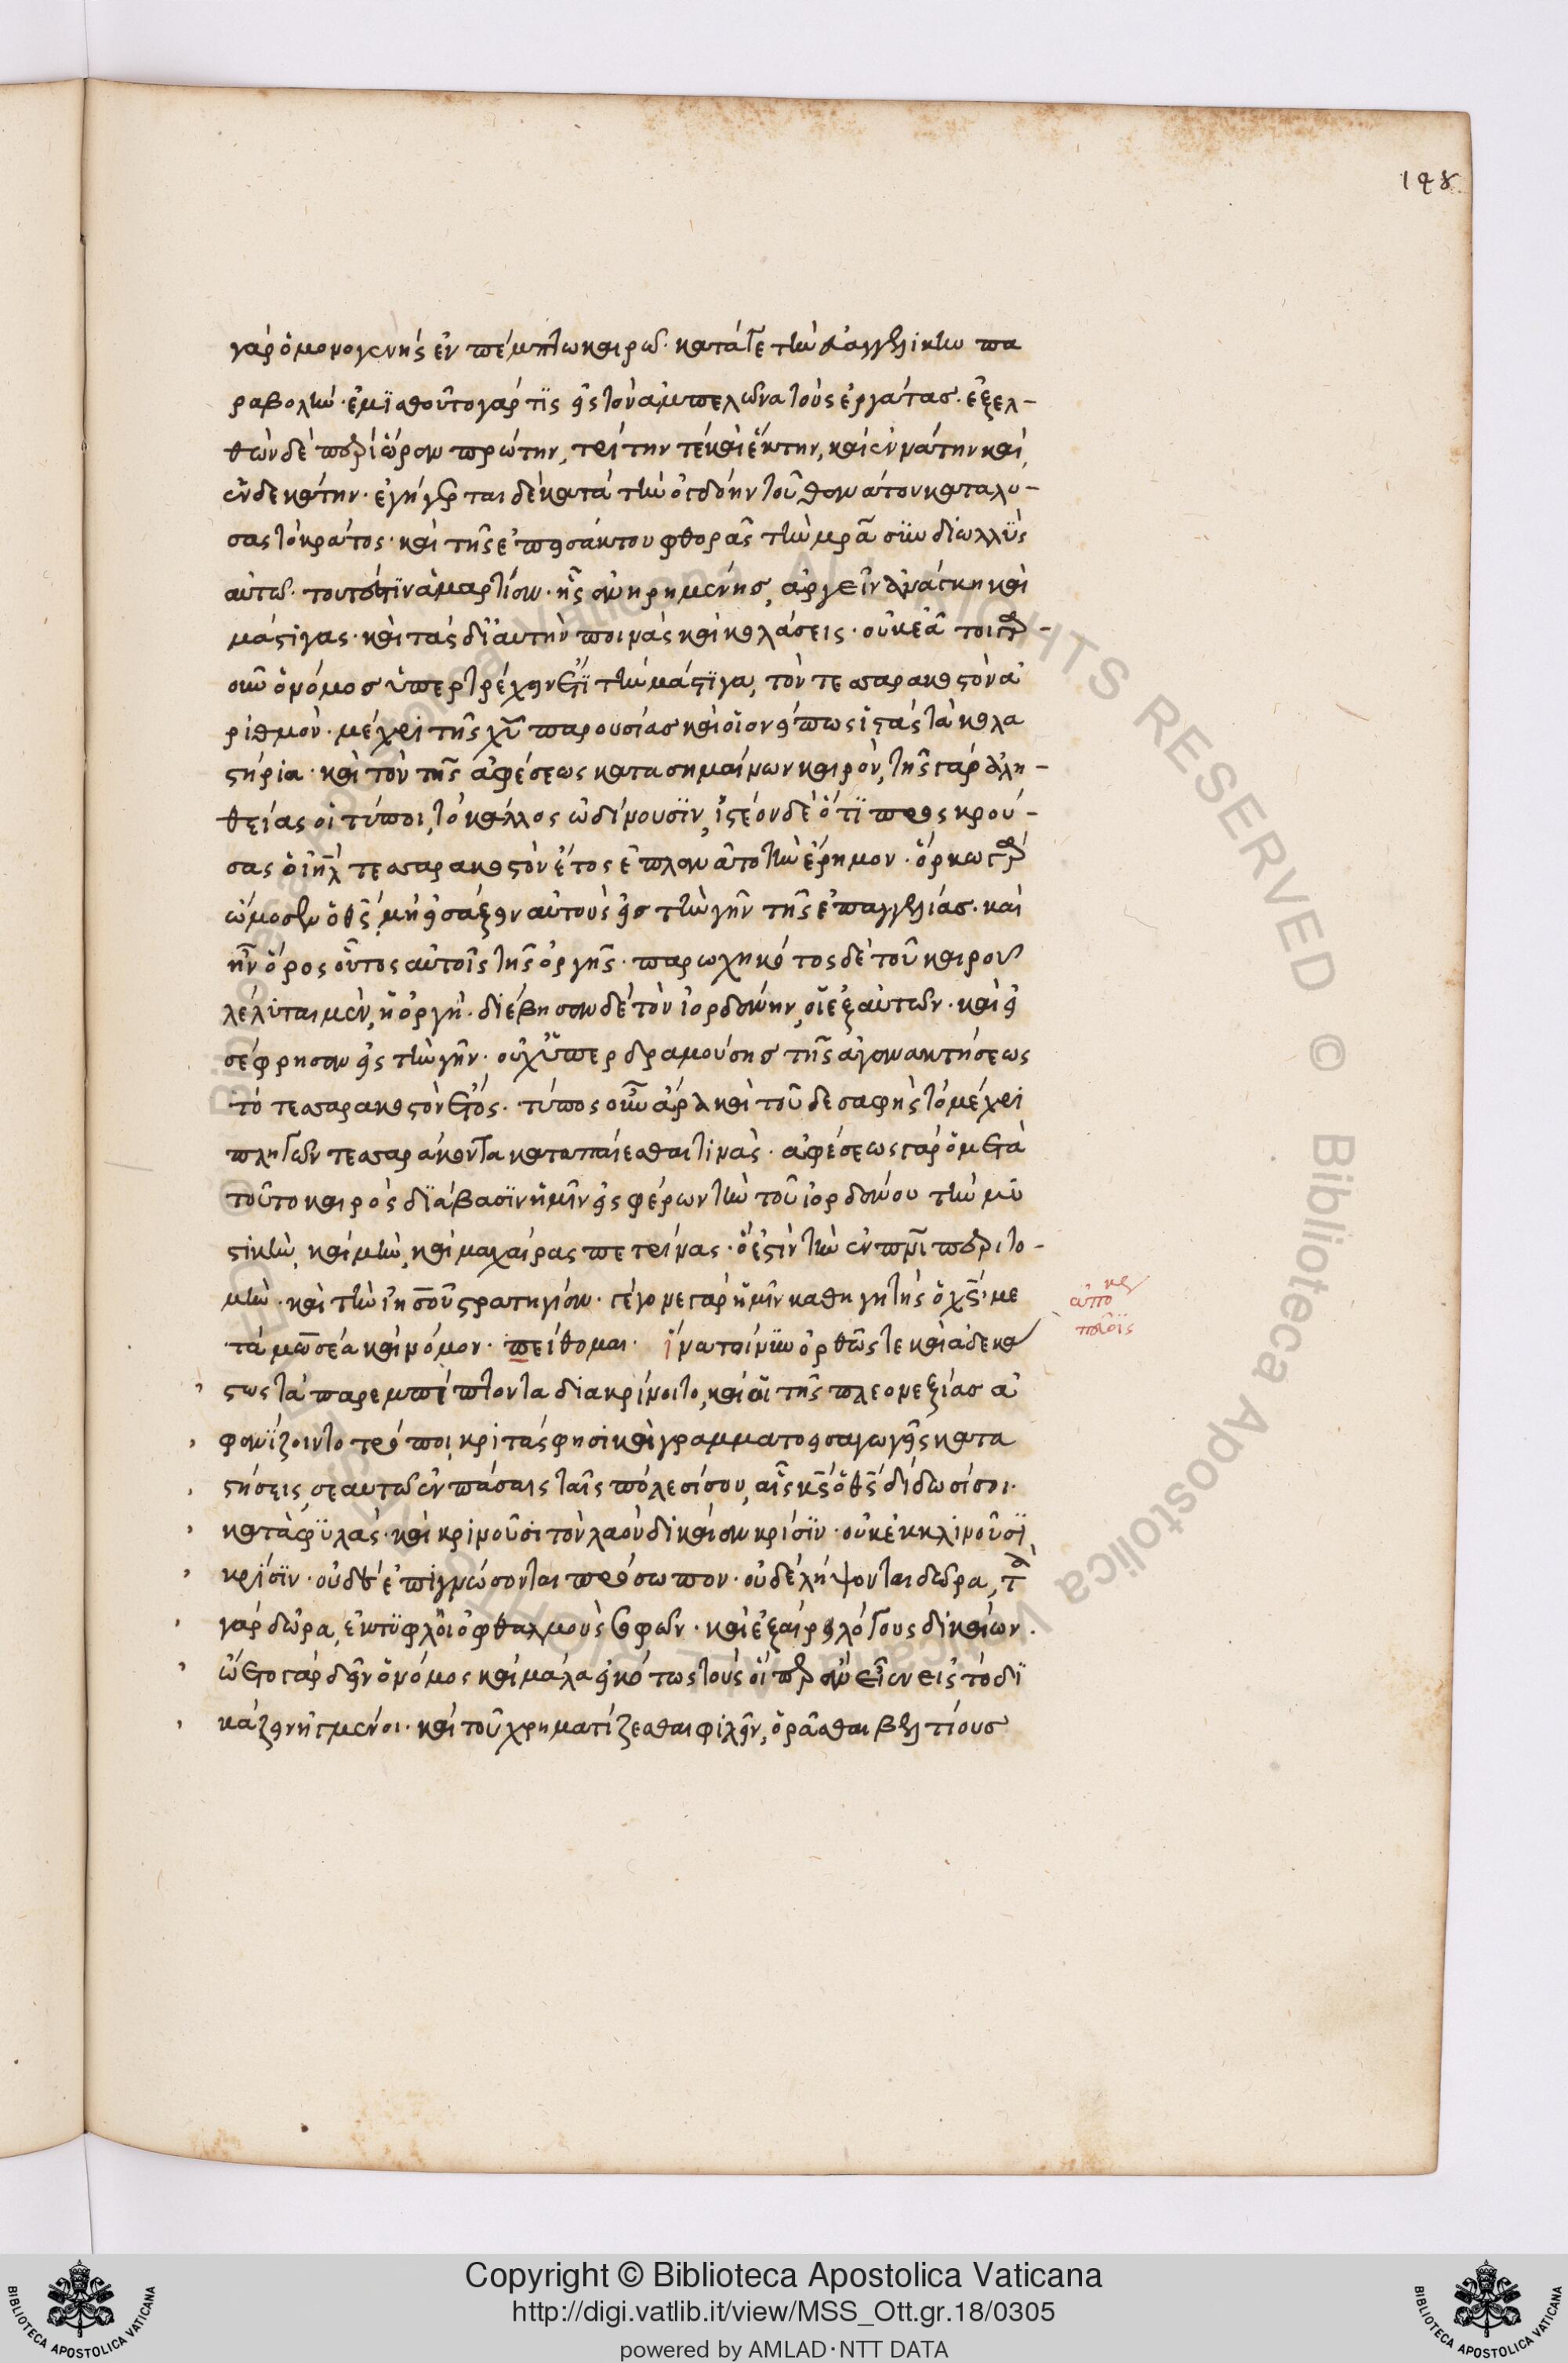 148
γὰρ ὁ μονογενὴς ἐν πέμπτω καιρῶ· κατά γε τὴν εὐαγγελικὴν πα
ραβολὴν· ἐμισθοῦτο γάρ τις εἰς τὸν ἀμπελῶνα τοὺς ἐργάτας. ἐξελ-
θὼν δὲ περὶ ὥραν πρώτην, τρίτην τὲ καὶ ἕκτην, καὶ ἐννάτην καὶ
ἑνδεκάτην· ἐγήγερται δὲ κατὰ τὴν ὀγδόην τοῦ θανάτου καταλύ-
σας τὸ κράτος· καὶ τῆς ἐπεισάκτου φθορᾶς τὴν μρᾶσιν διολλὺς
αὐτῶ. τουτέστιν ἁμαρτίαν· ἧς ἀνηρημένης, ἀργεῖν ἀνάγκη καὶ
μάστιγας· καὶ τὰς δι' αὐτὴν ποινὰς καὶ κολάσεις· οὐκ ἐᾶ τοιγαρ-
οῦν ὁ νόμος ὑπερτρέχειν ἔτι τὴν μάστιγα, τὸν τεσσαρακοστὸν ἀ
ριθμόν· μέχρι τῆς χυ παρουσίας καὶ οἷον είπως ἱστὰς τὰ κολα
στήρια· καὶ τὸν τῆς ἀφέσεως κατασημαίνων καιρὸν, τῆς γὰρ ἀλη-
θείας οἱ τύποι, τὸ κάλλος ὠδίνουσιν, ἰστέον δὲ ὅτι προσκρού-
σας ὁ ιηλ τεσσαρακοστὸν ἔτος ἐπλανᾶτο τὴν ἔρημον. ὅρκω γὰρ
ὤμοσεν ὁ θς, μὴ εἰσάξειν αὐτοὺς εἰς τὴν γῆν τῆς ἐπαγγελίας. καὶ
ἦν ὅρος οὗτος αὐτοῖς τῆς ὀργῆς· παρωχηκότος δὲ τοῦ καιροῦ
λέλυται μὲν, ἡ ὀργή· διέβησαν δὲ τὸν ἰορδάνην, οἱ ἐξ αὐτῶν· καὶ εἰ
σέφρησαν εἰς τὴν γῆν· οὐχ' ὑπερδραμούσης τῆς ἀγανακτήσεως
τὸ τεσσαρακοστὸν ἔτος· τύπος οὖν ἄρα καὶ τοῦδε σαφὴς τὸ μέχρι
πληγῶν τεσσαράκοντα καταπαίεσθαι τινάς· ἀφέσεως γὰρ ὁ μετὰ
τοῦτο καιρὸς διάβασιν ἡμῖν εἰσφέρων τὴν τοῦ ἰορδάνου τὴν μυ
στικὴν, καὶ μὴν, καὶ μαχαίρας πετρίνας· ὅ ἐστιν τὴν ἐν πνι περιτο-
μὴν· καὶ τὴν ἰησοῦ στρατηγίαν· γέγονε γὰρ ἡμῖν καθηγητὴς ὁ χς, με
τὰ μωσέα καὶ νόμον· πείθομαι· ἵνα τοίνυν ὀρθῶς τε καὶ ἀδεκά
στως τὰ παρεμπίπτοντα διακρίνοιτο, καὶ οἱ τῆς πλεονεξίας ἀ
φανίζοιντο τρόποι, κριτάς φησι καὶ γραμματοεισαγωγεῖς κατα
στήσεις σεαυτῶ ἐν πάσαις ταῖς πόλεσί σου, αἷς κς ὁ θς δίδωσί σοι.
κατὰ φυλάς· καὶ κρινοῦσι τὸν λαὸν δικαίαν κρίσιν· οὐκ ἐκκλινοῦσι
κρίσιν· οὐδὲ ἐπιγνώσονται πρόσωπον· οὐδὲ λήψονται δῶρα, τὰ
γὰρ δῶρα, ἐκτυφλοῖ ὀφθαλμοὺς σοφῶν· καὶ ἐξαίρει λόγους δικαίων.
ὤετο γὰρ δεῖν ὁ νόμος καὶ μάλα εἰκότως τοὺς οἵπερ ἂν εἶεν εἰς τὸ δι
κάζειν ἡγμένοι· καὶ τοῦ χρηματίζεσθαι φιλεῖν, ὁρᾶσθαι βελτίους
Copyright © Biblioteca Apostolica Vaticana
http://digi.vatlib.it/view/MSS_Ott.gr.18/0305
powered by AMLAD·NTT DATA